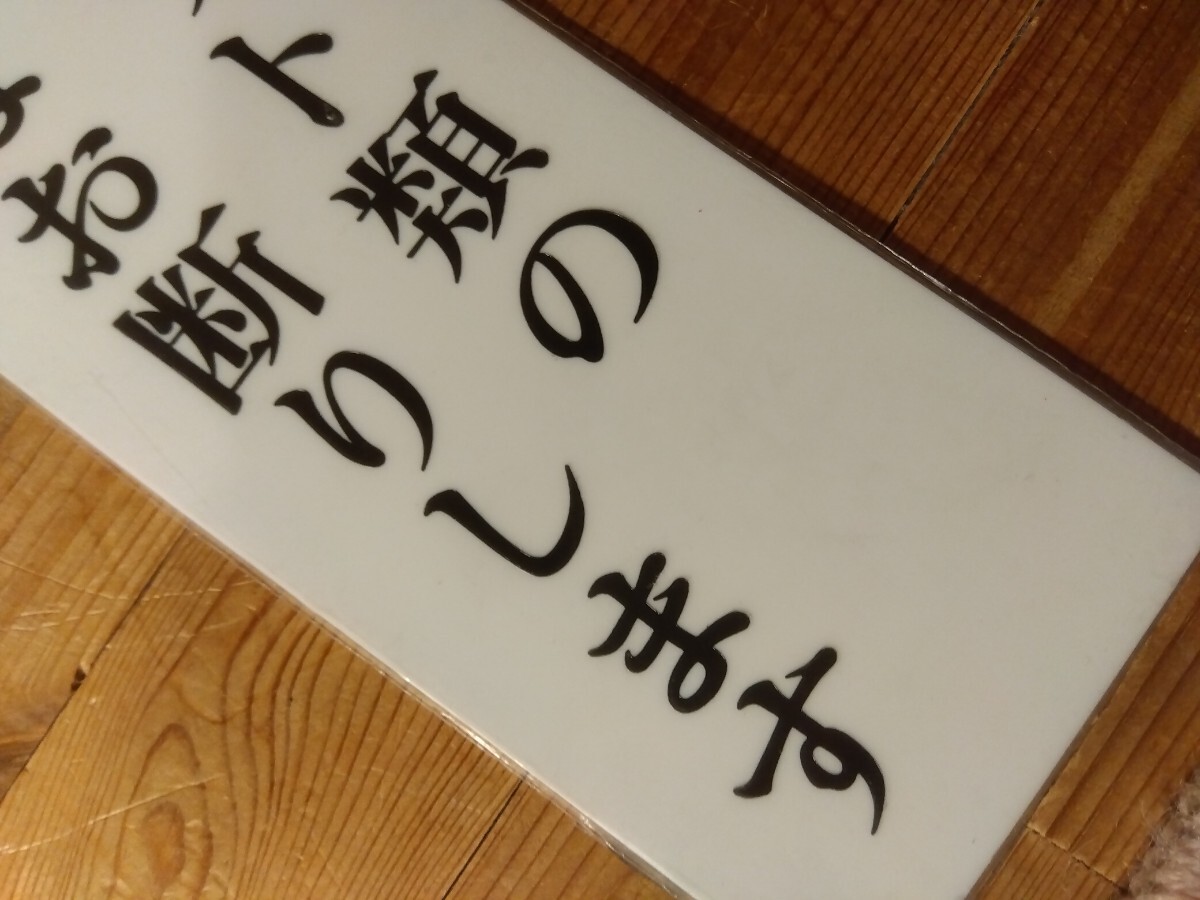 ト類の
お断りします